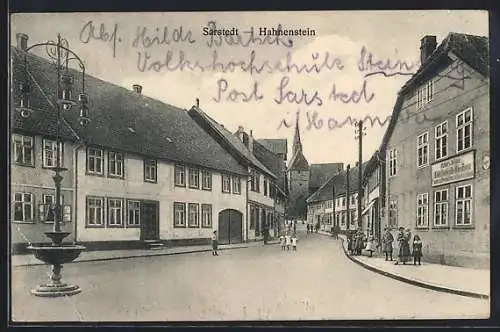 Sarstedt Hahnenstein
Abs. Hilde Bartsch
Volkshochschule
Post Sarstedt
i/Hannover